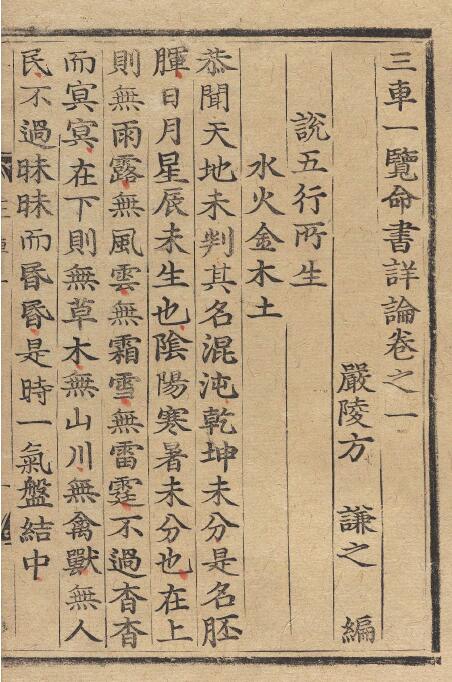 三車一覽命書詳論卷之一
嚴陵方　謙之　編
說五行所生
水火金木土
恭聞天地未判其名混沌乾坤未分是名胚
腪日月星辰未生也陰陽寒暑未分也在上
則無雨露無風雲無霜雪無雷霆不過杳杳
而冥冥在下則無草木無山川無禽獸無人
民不過昧昧而昏昏是時一氣盤結中